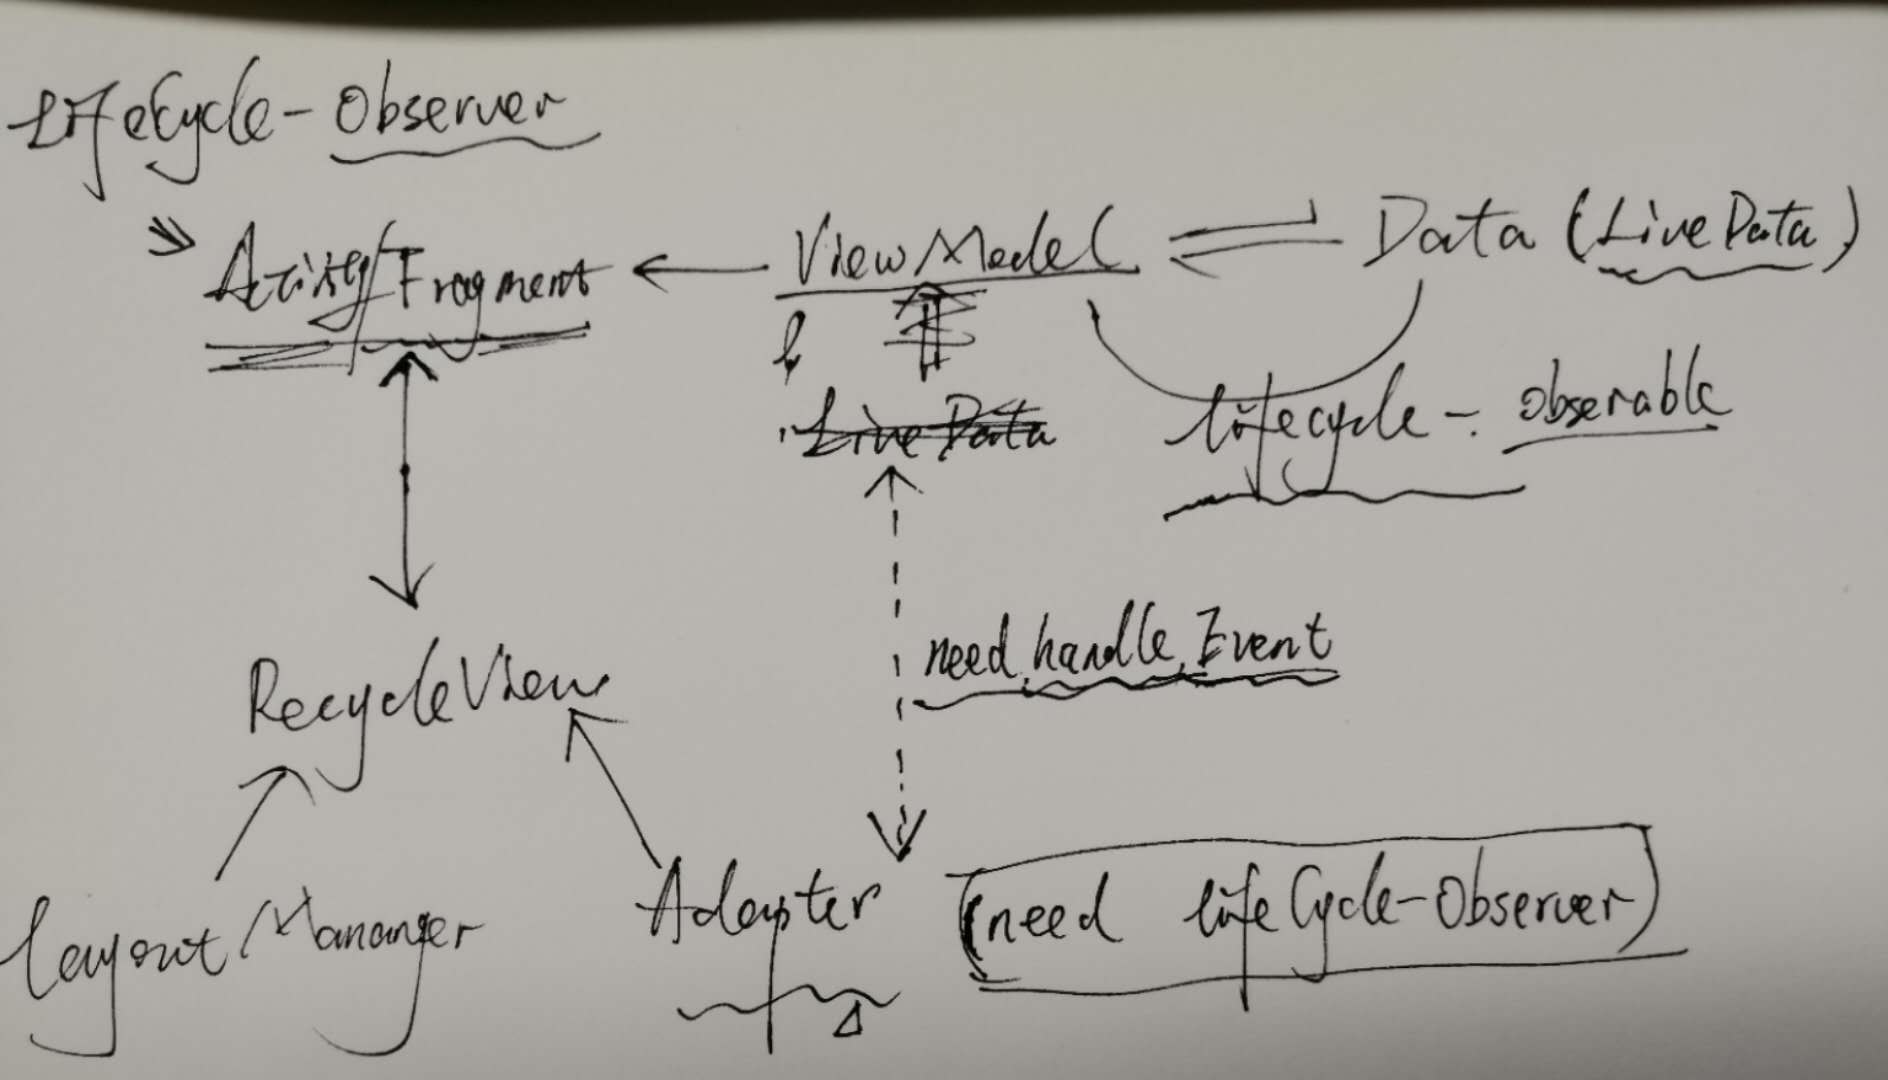 LifeCycle-Observer
Activity/Fragment
ViewModel
Data (LiveData)
LiveData
lifecycle-obserable
need handle Event
RecycleView
Layout Mananger
Adapter
(need lifeCycle-Observer)